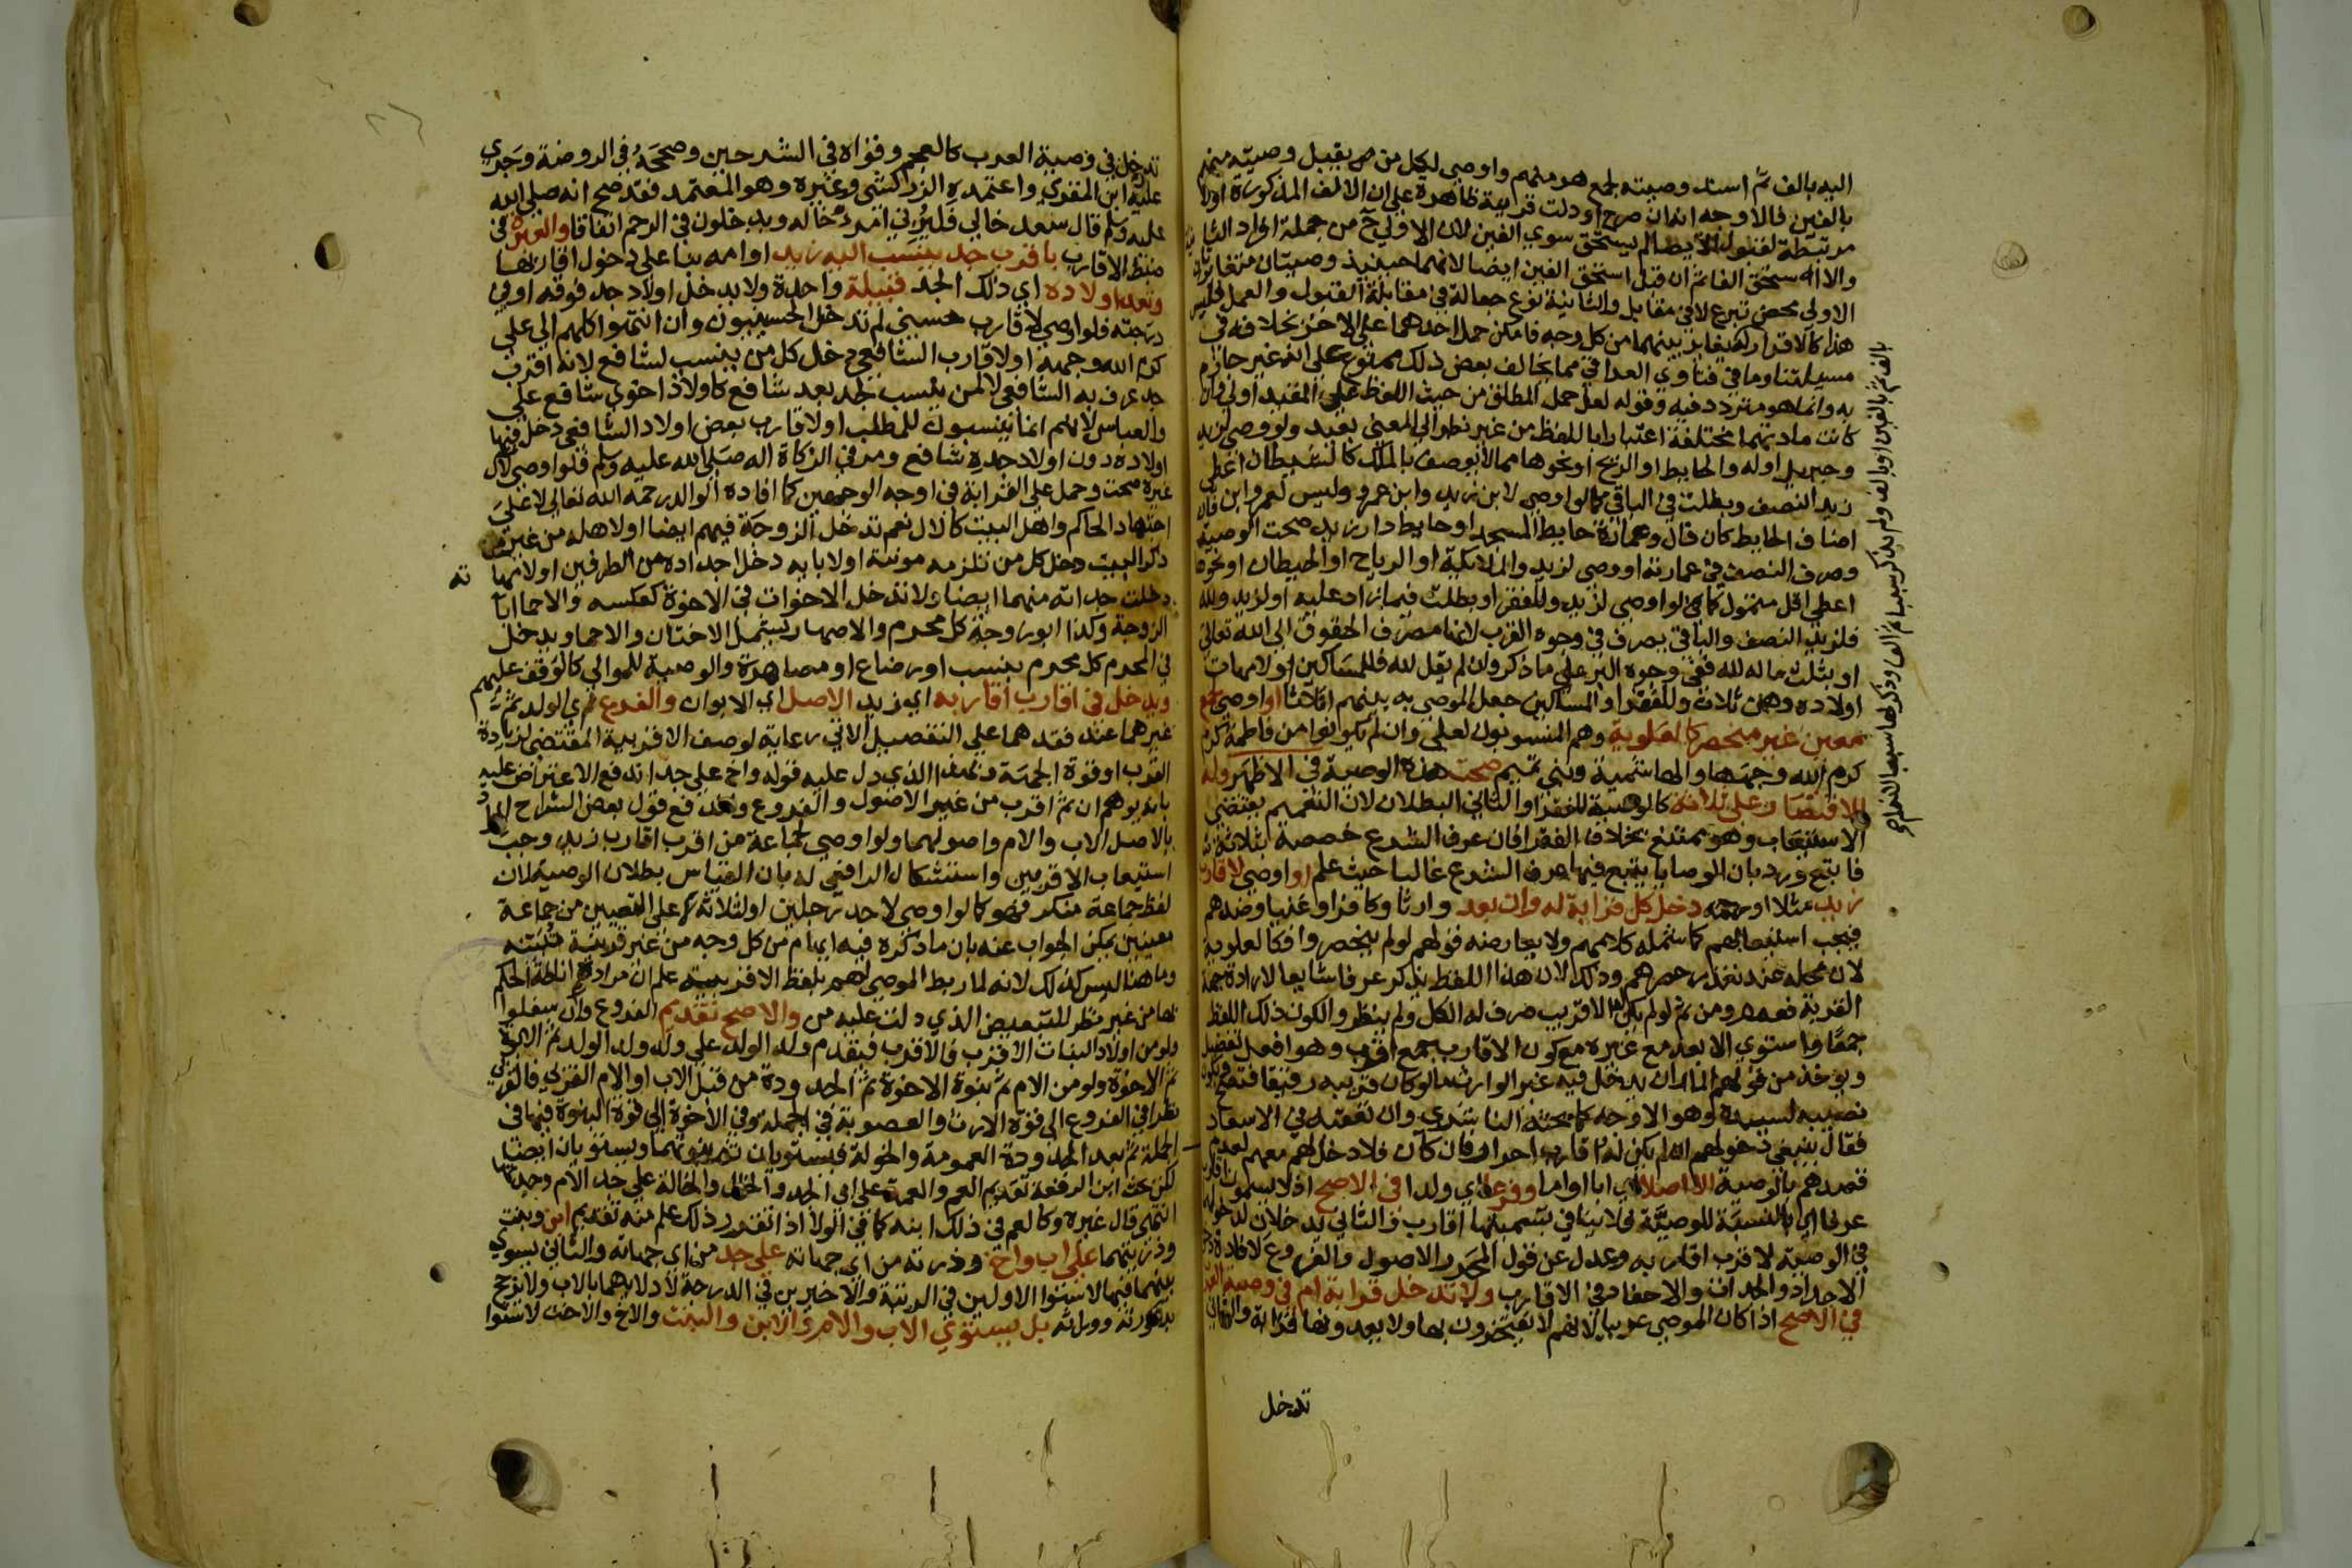 اليه بالف ثم اسند وصيته لجمع هو منهم واوصى لكل من يقبل وصيته منهم
بالفين فالاوجه انه ان صرح او دلت قرينة ظاهرة على ان الالف المذكورة اولا
مرتبطة لقبول الايصا لم يستحق سوى الفين لان الاولى ح من جملة افراد الثانية
والا استحق الفا ثم ان قبل استحق الفين ايضا لانهما حينيذ وصيتان متغايرتان
الاولى محض تبرع لا في مقابل والثانية نوع جعالة في مقابلة القبول والعمل فليس
هذا كالاقرار له يغاير بينهما من كل وجه فامكن حمل احدهما على الاخر بخلافه في
مسيلتنا وما في فتاوي العراقي مما يخالف بعض ذلك ممنوع على انه غير جازم
به وانما هو متردد فيه وقوله لعل حمل المطلق من حيث اللفظ على المقيد اولى وان
كانت مادتهما مختلفة اعتبارا باللفظ من غير نظر الى المعنى بعيد ولو وصى لزيد
وجبريل او له والحايط او الريح او نحوها مما لا يوصف بالملك كالشيطان اعطى
زيد النصف وبطلت في الباقي كما لو اوصى لابن زيد وابن عمرو وليس لعمرو ابن فان
اضاف الحايط كان قال وعمارة حايط المسجد او حايط دار زيد صحت الوصية
وصرف النصف في عمارته او وصى لزيد والملايكة او الرياح او الحيطان او نحوه
اعطى اقل متمول كما لو اوصى لزيد وللفقرا وبطلت فيما زاد عليه او لزيد ولله
فلزيد النصف والباقي يصرف في وجوه القرب لانها مصرف الحقوق الى الله تعالى
او بثلث ماله لله ففي وجوه البر على ما ذكر وان لم يقل لله فللمساكين او لامهات
اولاده وهن ثلاث وللفقرا والمساكين جعل الموصى به بينهم اثلاثا او اوصى لجمع
معين غير منحصر كالعلوية وهم المنسوبون لعلي وان لم يكونوا من فاطمة كرم
كرم الله وجهها والهاشمية وبني تميم صحت هذه الوصية في الاظهر وله
الاقتصار على ثلاثة كالوصية للفقرا والثاني البطلان لان التعميم يقتضي
الاستيعاب وهو ممتنع بخلاف الفقرا فان عرف الشرع خصصه بثلاثة
فاتبع ورد بان الوصايا يتبع فيها عرف الشرع غالبا حيث علم او اوصى لاقارب
زيد مثلا او رحمه دخل كل قرابة له وان بعد وارثا وكافرا وغنيا وضدهم
فيجب استيعابهم كما شمله كلامهم ولا يعارضه قولهم لو لم ينحصروا فكالعلوية
لان محله عند تعذر حصرهم وذلك لان هذا اللفظ يذكر عرفا شايعا لارادة جهة
القرابة فعمم ومن ثم لو لم يكن الا قريب صرف له الكل ولم ينظروا لكون ذلك اللفظ
جمعا واستوى الابعد مع غيره مع كون الاقارب جمع اقرب وهو افعل تفضيل
ويوخذ من قولهم انه يدخل فيه غير الوارث ما لو كان قريبه رقيقا فتصح ويكون
نصيبه لسيده وهو الاوجه كما بحثه الناشري وان تفقه في الاسعاد
فقال ينبغي دخولهم ان لم يكن له اقارب احرار فان كان فلا دخل لهم معهم لعدم
قصدهم بالوصية الا اصلا اي ابا او اما وفرعا اي ولدا في الاصح اذ لا يسمون اقارب
عرفا اي بالنسبة للوصية فلا ينافي تسميتهما اقارب في الثاني يدخلان لدخولهم
في الوصية لاقرب اقاربه وعدل عن قول المحرر الاصول والفروع لافادة دخول
الاجداد والجدات والاحفاد في الاقارب ولا تدخل قرابة ام في وصية العرب
في الاصح اذا كان الموصي عربيا لانهم لا يفتخرون بها ولا يعدونها قرابة والثاني
تدخل
بالف ثم بالفين او بالف ولم يذكر سببا ثم الف وذكر لها سببا
تدخل في وصية العرب كالعجم وقواه في الشرحين وصححه في الروضة وجرى
عليه ابن المقري واعتمده الزركشي وغيره وهو المعتمد فقد صح انه صلى الله
عليه وسلم قال سعد خالي فليرني امرؤ خاله ويدخلون في الرحم اتفاقا والعبرة في
ضبط الاقارب باقرب جد ينسب اليه زيد او امه بنا على دخول اقاربها
وتعد اولاده اي ذلك الجد قبيلة واحدة ولا يدخل اولاد جد فوقه او في
درجته فلو اوصى لاقارب حسيني لم تدخل الحسنيون وان انتموا كلهم الى علي
كرم الله وجهه او لاقارب الشافعي دخل كل من ينسب لشافع لانه اقرب
جد عرف به الشافعي لا لمن ينسب لجد بعد شافع كاولاد اخوي شافع علي
والعباس لانهم انما ينسبون للمطلب او لاقارب بعض اولاد الشافعي دخل فيها
اولاده دون اولاد جده شافع ومر في الزكاة اله صلى الله عليه وسلم فلو اوصى لآل
غيره صحت وحمل على القرابة في اوجه الوجهين كما افاده الوالد رحمه الله تعالى لا على
اجتهاد الحاكم واهل البيت كالآل نعم تدخل الزوجة فيهم ايضا او لاهله من غير
ذكر البيت دخل كل من تلزمه مونته او لابايه دخل اجداده من الطرفين او لامهاته
دخلت جداته منهما ايضا ولا تدخل الاخوات في الاخوة كعكسه والاحما ابا
الزوجة وكذا ابو زوجة كل محرم والاصهار يشمل الاختان والاحما ويدخل
في المحرم كل محرم بنسب او رضاع او مصاهرة والوصية للموالي كالوقف عليهم
ويدخل في اقارب اقاربه اي زيد الاصل اي الابوان والفرع اي الولد ثم
غيرهما عند فقدهما على التفصيل الاتي رعاية لوصف الاقربية المقتضي لزيادة
القرب او قوة الجهة وبهذا الذي دل عليه قوله واخ على جد اندفع الاعتراض عليه
بانه يوهم ان ثم اقرب من غير الاصول والفروع واندفع قول بعض الشراح المراد
بالاصل الاب والام واصولهما ولو اوصى لجماعة من اقرب اقارب زيد وجب
استيعاب الاقربين واستشكال الرافعي له بان القياس بطلان الوصية لان
لفظ جماعة منكر فهو كما لو اوصى لاحد رجلين او لثلاثة لا على التعيين من جماعة
معينين يمكن الجواب عنه بان ما ذكره فيه ابهام من كل وجه من غير قرينة تبينه
وما هنا ليس كذلك لانه لما ربط الموصى لهم بلفظ الاقربية علم ان مراده اناطة الحكم
بها من غير نظر للتبعيض الذي دلت عليه من والاصح تقديم الفروع وان سفلوا
ولو من اولاد البنات الاقرب فالاقرب فيقدم ولد الولد على ولد ولد الولد ثم الابوة
ثم الاخوة ولو من الام ثم بنوة الاخوة ثم الجدودة من قبل الاب او الام القربى فالقربى
نظرا في الفروع الى قوة الارث والعصوبة في الجملة وفي الاخوة الى قوة البنوة فيها في
الجملة ثم بعد الجدودة العمومة والخولة فيستويان ثم بنوتهما ويستويان ايضا
لكن بحث ابن الرفعة تقديم العم والعمة على ابي الجد والخال والخالة على جد الام وجدتها
انتهى قال غيره وكالعم في ذلك ابنه كما في الولا اذا تقرر ذلك علم منه تقديم ابن وبنت
وذريتهما على اب واخ وذريته من اي جهاته على جد من اي جهاته والثاني يسوي
بينهما فيهما لاستوا الاولين في الرتبة والاخيرين في الدرجة لادلائهما بالاب ولا يرجح
بذكورة ووراثة بل يستوي الاب والام والابن والبنت والاخ والاخت لاستوا